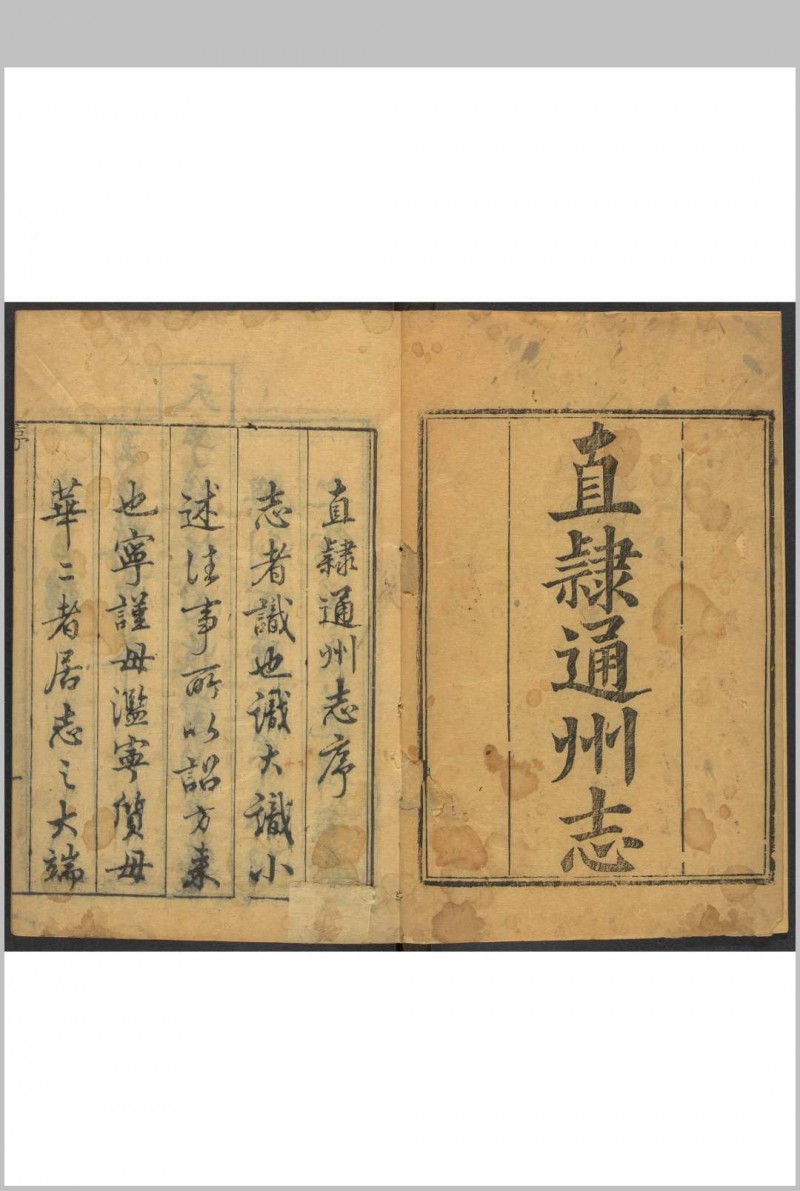 直隸通州志
直隸通州志序
志者識也識大識小
述往事所以詔方來
也寧謹毋濫寧質毋
華二者居志之大端
序